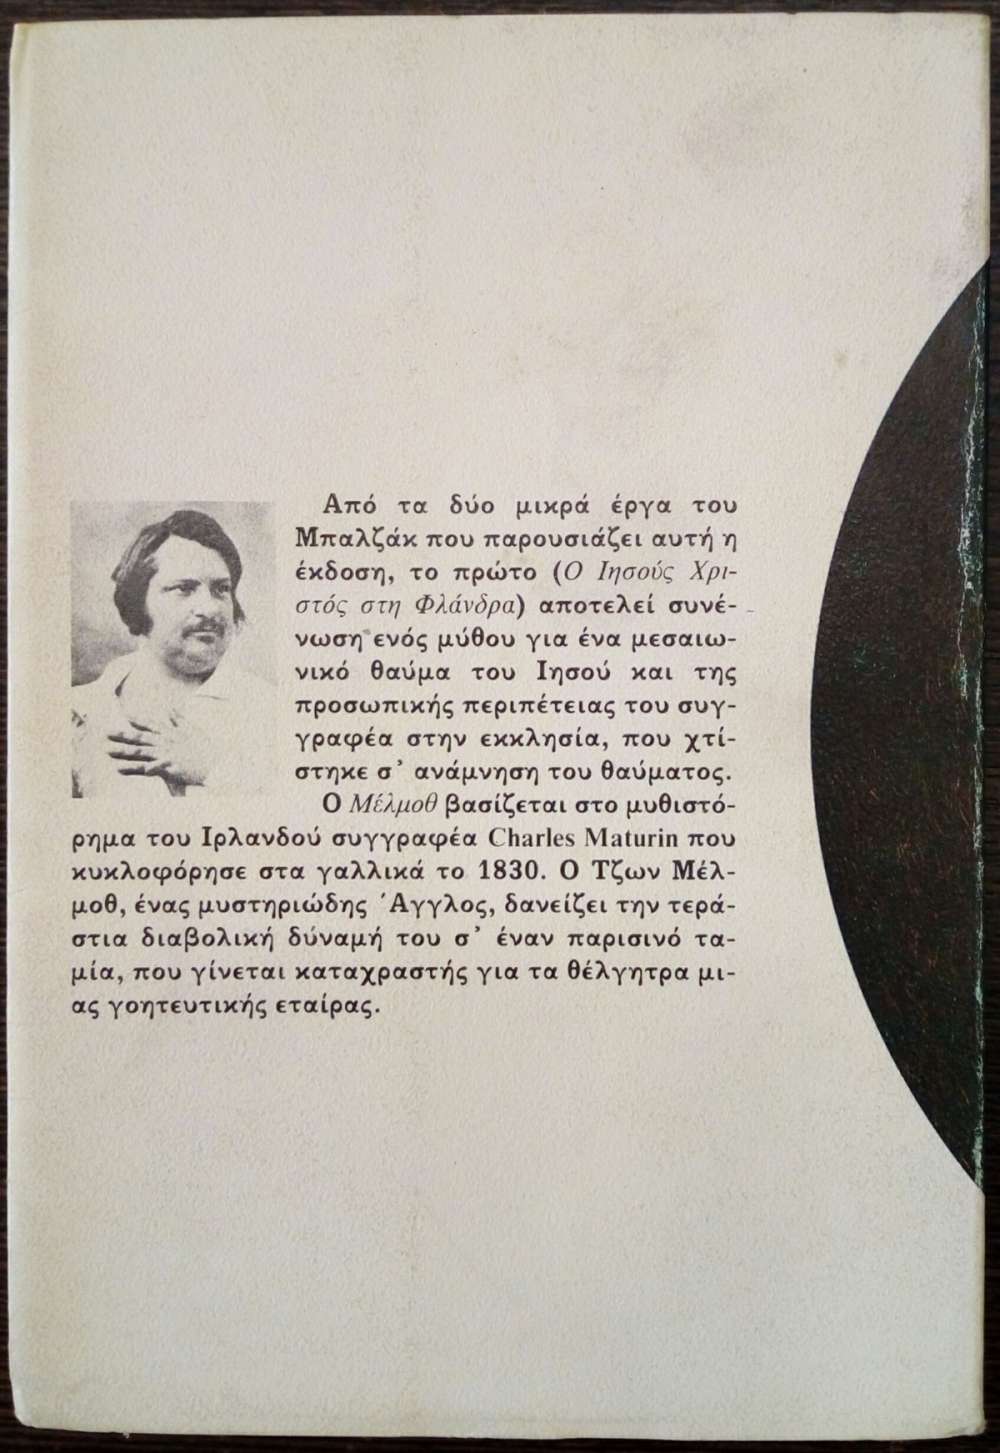 Από τα δύο μικρά έργα του
Μπαλζάκ που παρουσιάζει αυτή η
έκδοση, το πρώτο (Ο Ιησούς Χρι-
στός στη Φλάνδρα) αποτελεί συνέ-
νωση ενός μύθου για ένα μεσαιω-
νικό θαύμα του Ιησού και της
προσωπικής περιπέτειας του συγ-
γραφέα στην εκκλησία, που χτί-
στηκε σ᾿ ανάμνηση του θαύματος.
Ο Μέλμοθ βασίζεται στο μυθιστό-
ρημα του Ιρλανδού συγγραφέα Charles Maturin που
κυκλοφόρησε στα γαλλικά το 1830. Ο Τζων Μέλ-
μοθ, ένας μυστηριώδης Άγγλος, δανείζει την τερά-
στια διαβολική δύναμή του σ᾿ έναν παρισινό τα-
μία, που γίνεται καταχραστής για τα θέλγητρα μι-
ας γοητευτικής εταίρας.